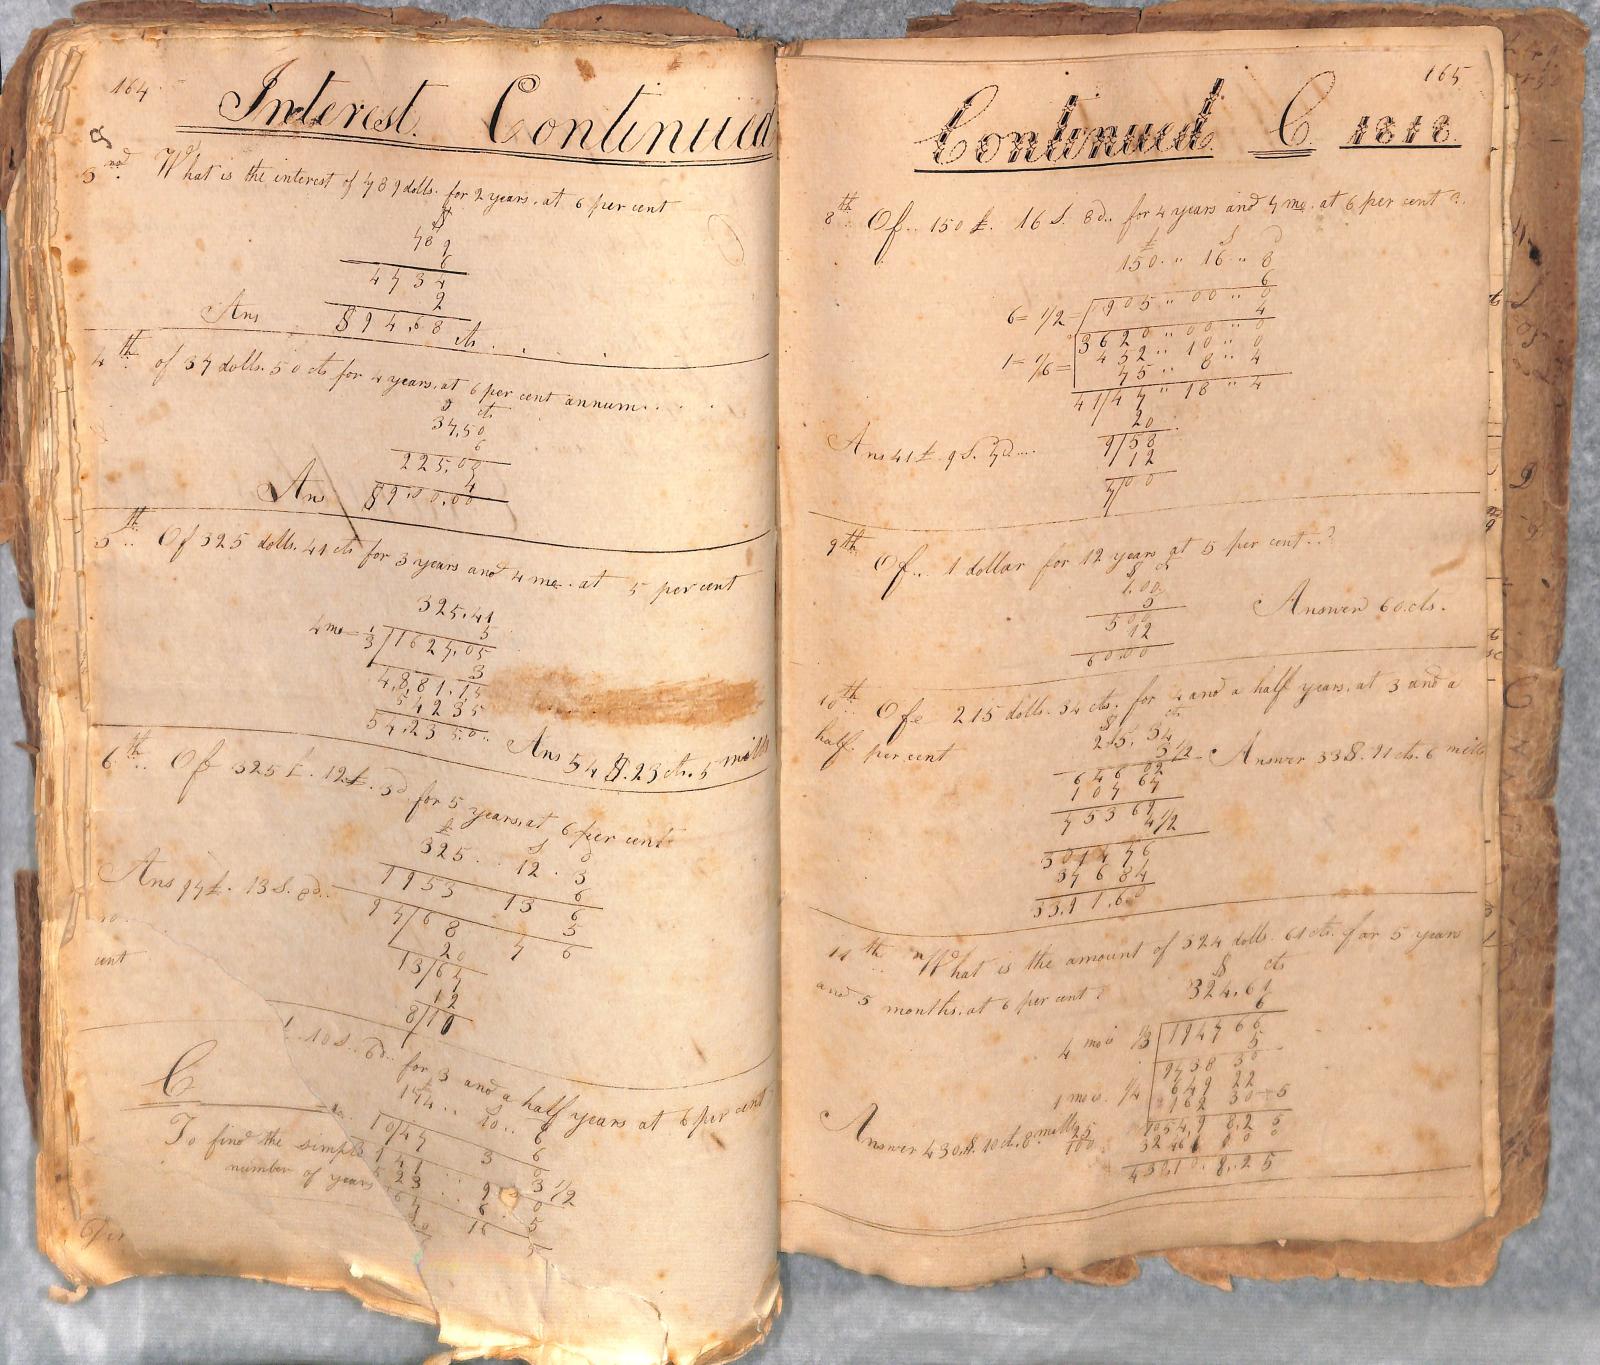 164
Interest. Continued
3rd. What is the interest of 789 dolls. for 2 years. at 6 per cent
$
789
6
4734
2
Ans $94,68 cts.
4th. of 37 dolls. 50 cts for 4 years. at 6 per cent annum.
$ cts
37,50
6
225,00
4
Ans $9,00,00
5th. Of 325 dolls. 41 cts for 3 years and 4 mo. at 5 per cent
325,41
5
4 mo = 1/3 | 1627,05
3
4,8,81,15
5 4 2 35
54,235,0
Ans 54 $. 23 cts. 5 mills
6th. Of 325 £. 12 £. 3d for 5 years. at 6 per cent
£ S d
325 .. 12 . 3
6
1953 13 6
5
97/68 7 6
20
13/67
12
8/10
Ans 97£. 13S. 8d.
cent
10 S. 6d. for 3 and a half years at 6 per cent
174 .. 10 .. 6
6
1047 3 0
3 1/2
C
To find the simple
number of years
165
Continued C 1818.
8th. Of.. 150 £. 16 S. 8d.. for 4 years and 7 mo. at 6 per cent?
£ S d
150 .. 16 .. 8
6
6 = 1/2 = | 905 .. 00 .. 0
4
3620 .. 00 .. 0
1 = 1/6 = 452 .. 10 .. 0
75 .. 8 .. 4
41/47 .. 18 .. 4
20
9/58
12
7/00
Ans 41£. 9S. 7d....
9th Of.. 1 dollar for 12 years at 5 per cent..?
$ ct
1,00
5
500
12
60,00
Answer 60.cts.
10th. Of 215 dolls. 34 cts. for 4 and a half years. at 3 and a
half per cent
$ cts
215.34
3 1/2
646 02
107 67
753 69
4 1/2
301476
37684
33,91,60
Answer 33$. 91 cts. 6 mills
11th What is the amount of 324 dolls. 61 cts. for 5 years
and 5 months. at 6 per cent?
$ cts
324,61
6
4 mo is 1/3 | 194766
5
9738 30
649 22
1 mo is. 1/4 162 30 5
1054,9 8,2 5
32 461 0 0 0
430,10. 8,25
Answer 430.$. 10 ct. 8 mills 25
100